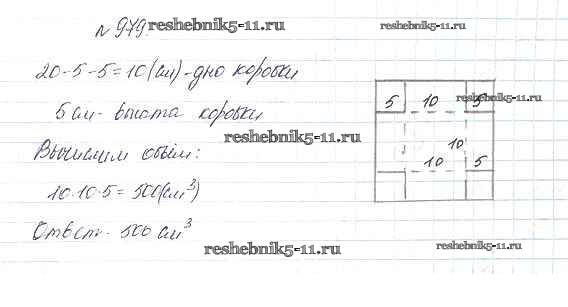 № 979. reshebnik5-11.ru
reshebnik5-11.ru
20-5-5=10(см)-дно коробки
5 10 5 reshebnik5-11.ru
5 см- высота коробки
reshebnik5-11.ru
10
Вычислим объём:
10 5
10·10·5=500(см³)
Ответ. 500 см³
reshebnik5-11.ru
reshebnik5-11.ru